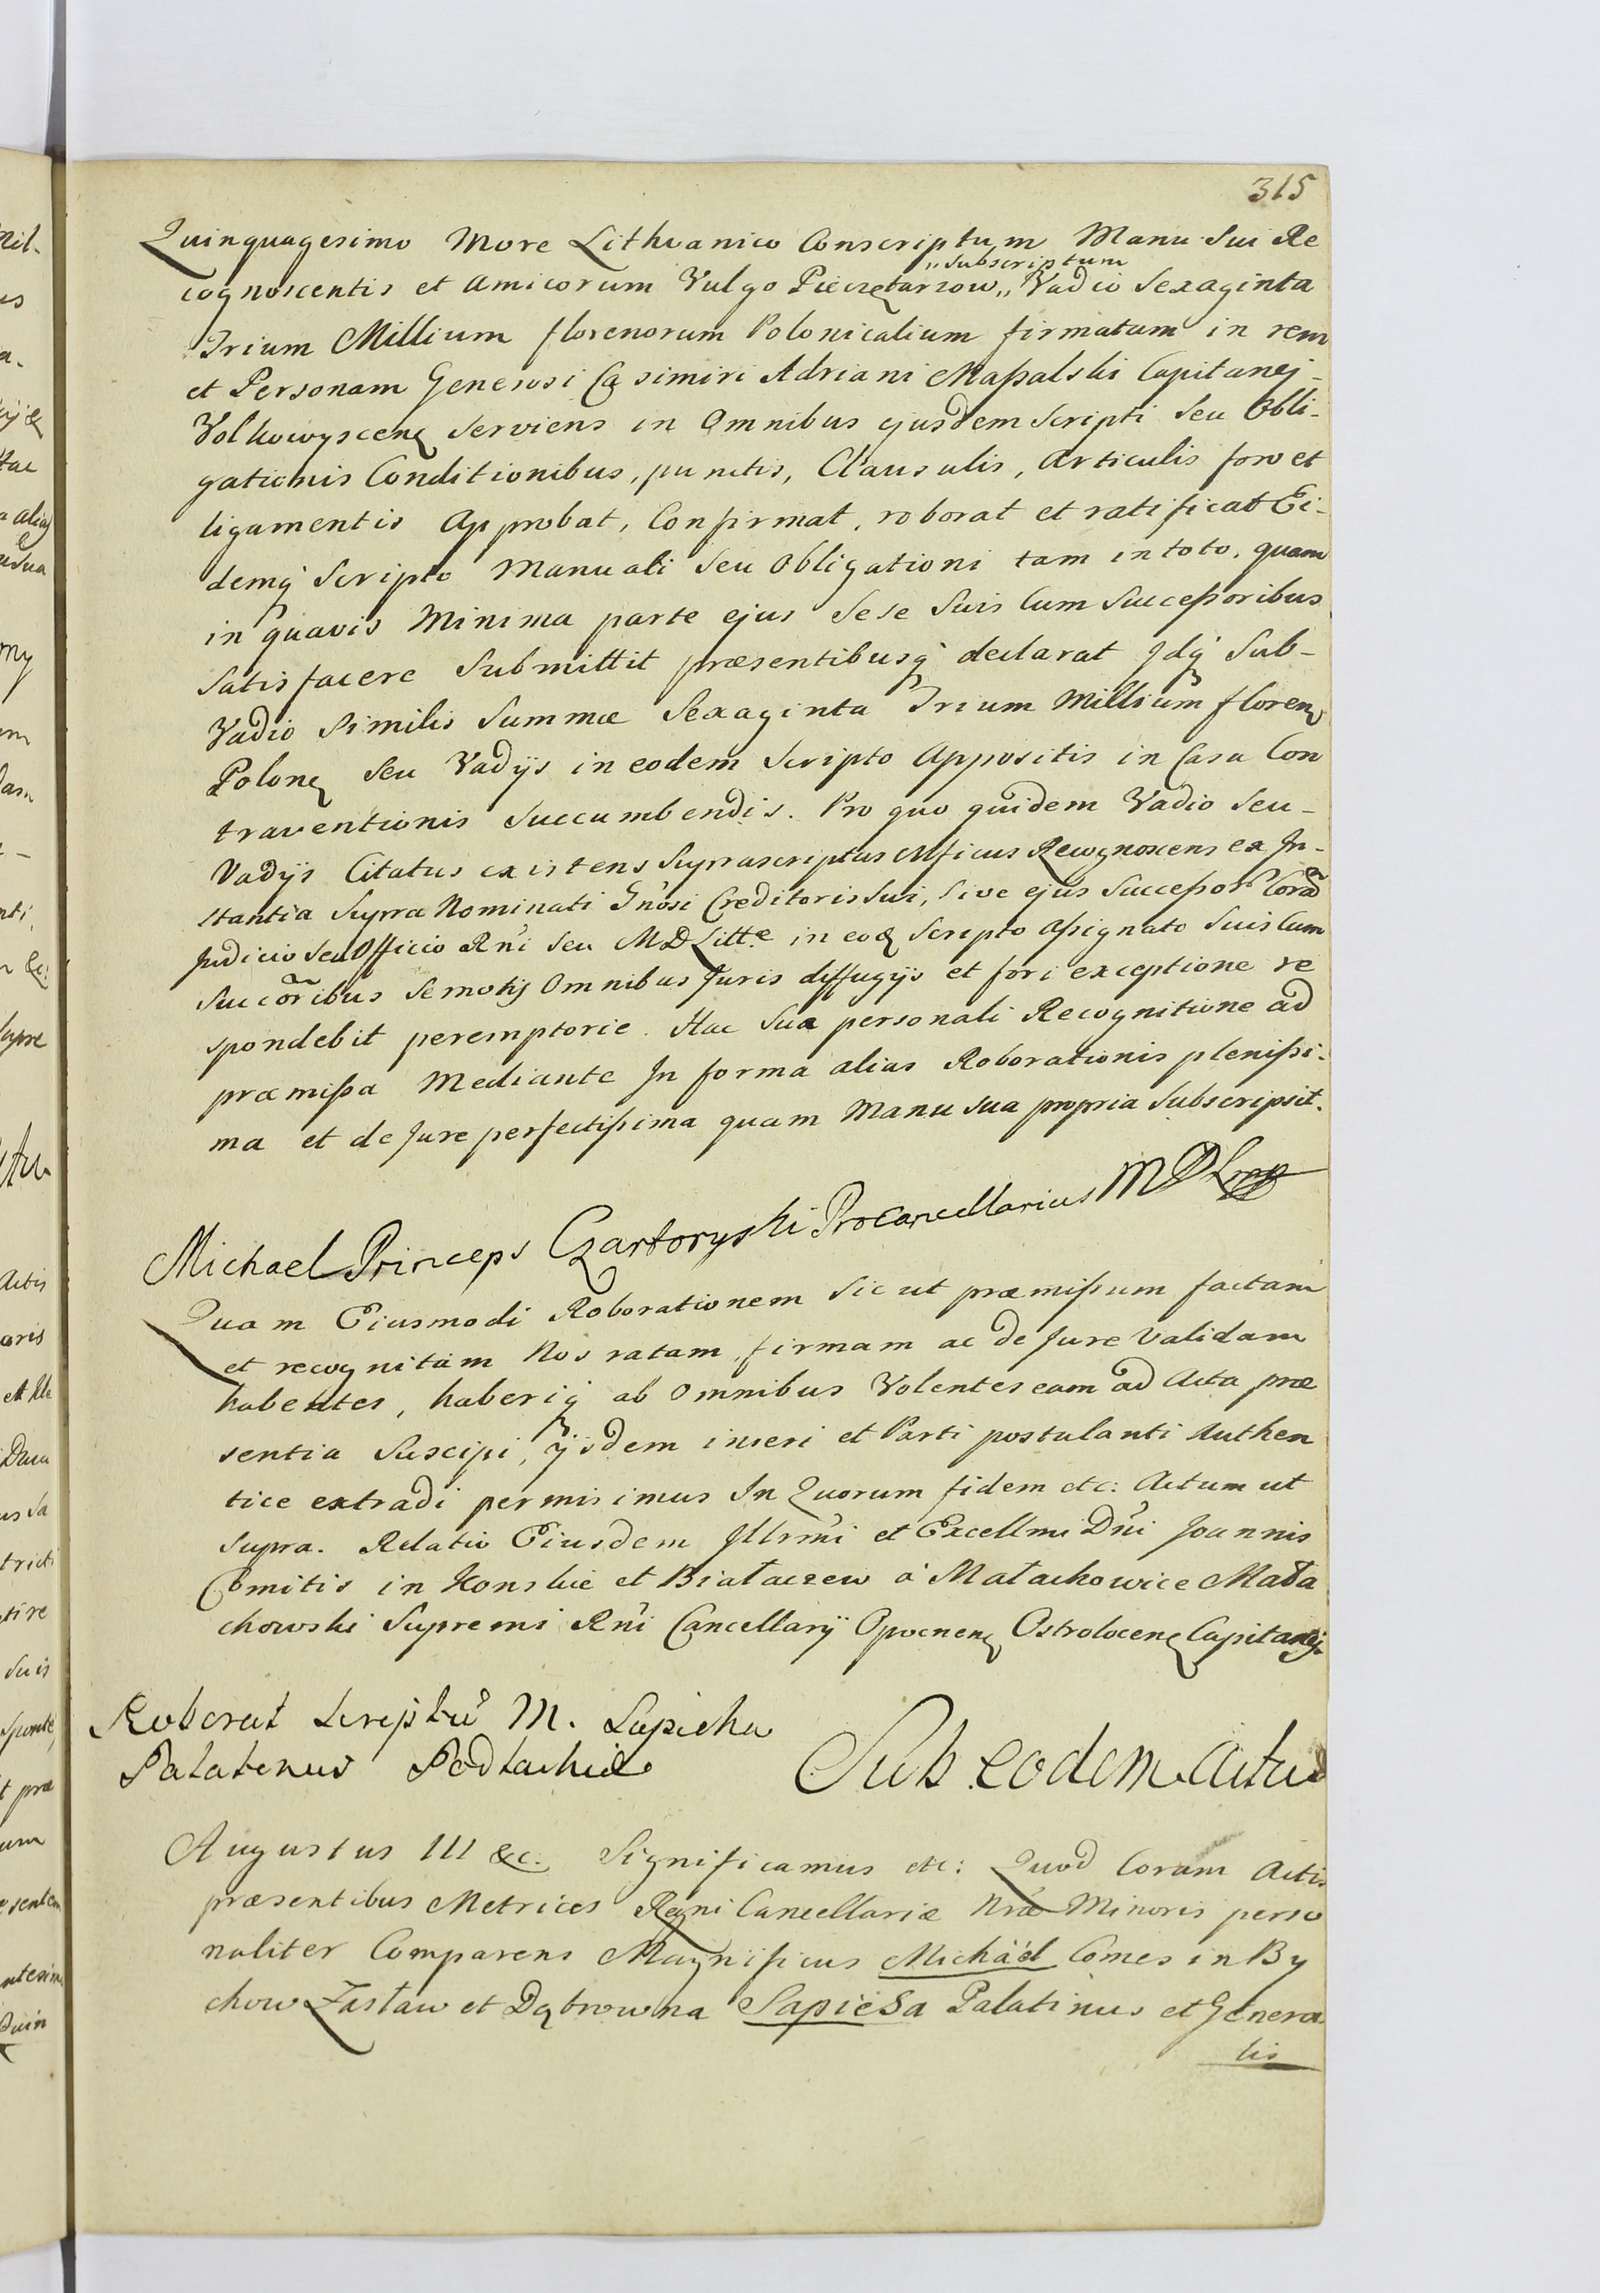 315
Quinquagesimo More Lithvanico Conscriptum Manu Sui Re
"subscriptum
cognoscentis et Amicorum Vulgo Pieczętarzow,, Vadio Sexaginta
Trium Millium florenorum Polonicalium firmatum in rem
et Personam Generosi Casimiri Adriani Maßalski Capitanej
Volkowyscenę serviens in Omnibus ejusdem Scripti Seu Obli-
gationis Conditionibus, punctis, Clausulis, Articulis foro et
ligamentis Approbat, Confirmat, roborat et ratificat Ei-
demq Scripto Manuali Seu Obligationi tam in toto, quam
in quavis Minima parte ejus Sese Suis Cum Succeßoribus
Satisfacere Submittit præsentibusq declarat Jdq Sub-
Vadio Similis Summæ Sexaginta Trium Millium floren
Polonę Seu Vadijs in eodem Scripto Appositis in Casu Con
traventionis Succumbendis. Pro quo quidem Vadio Seu-
Vadijs Citatus existens Suprascriptus Mficus Recognoscens ex Jn-
stantia Supra Nominati Gnosi Creditoris Sui, Sive ejus Succeßor Corã
Judicio Seu Officio Rni Seu MD Litt.æ in eod Scripto Aßignato Suis Cum
Succoribus Semotis Omnibus Juris diffugijs et fori exceptione re
spondebit peremptorie. Hac Sua personali Recognitione ad
præmißa Mediante Jn forma alias Roborationis plenißi-
ma et de Jure perfectißima quam Manu Sua propria Subscripsit.
Michael Princeps Czartoryski ProCancellarius MDL
Quam Eiusmodi Roborationem Sic ut præmißum factam
et recognitam Nos ratam, firmam ac de Jure Validam
habentes, haberiq ab Omnibus Volentes eam ad Acta præ
sentia Suscipi, ijsdem inseri et Parti postulanti Authen
tice extradi permisimus Jn Quorum fidem etc: Actum ut
supra. Relatio Eiusdem Jllrmi et Excellmi Dni Joannis
Comitis in Konskie et Białaczew à Małachowice Mała
chowski Supremi Rni Cancellarij Opocnenę Ostrolocenę Capitanej.
Roborat Scriptũ M. Sapieha
Palatinus Podlachiæ
Sub eodem Actu
Augustus III &c. Significamus etc: Quod Coram Actis
præsentibus Metrices Regni Cancellariæ Nræ Minoris perso
naliter Comparens Magnificus Michaël Comes in By
chow Zasław et Dąbrowna Sapieha Palatinus et Genera
lis